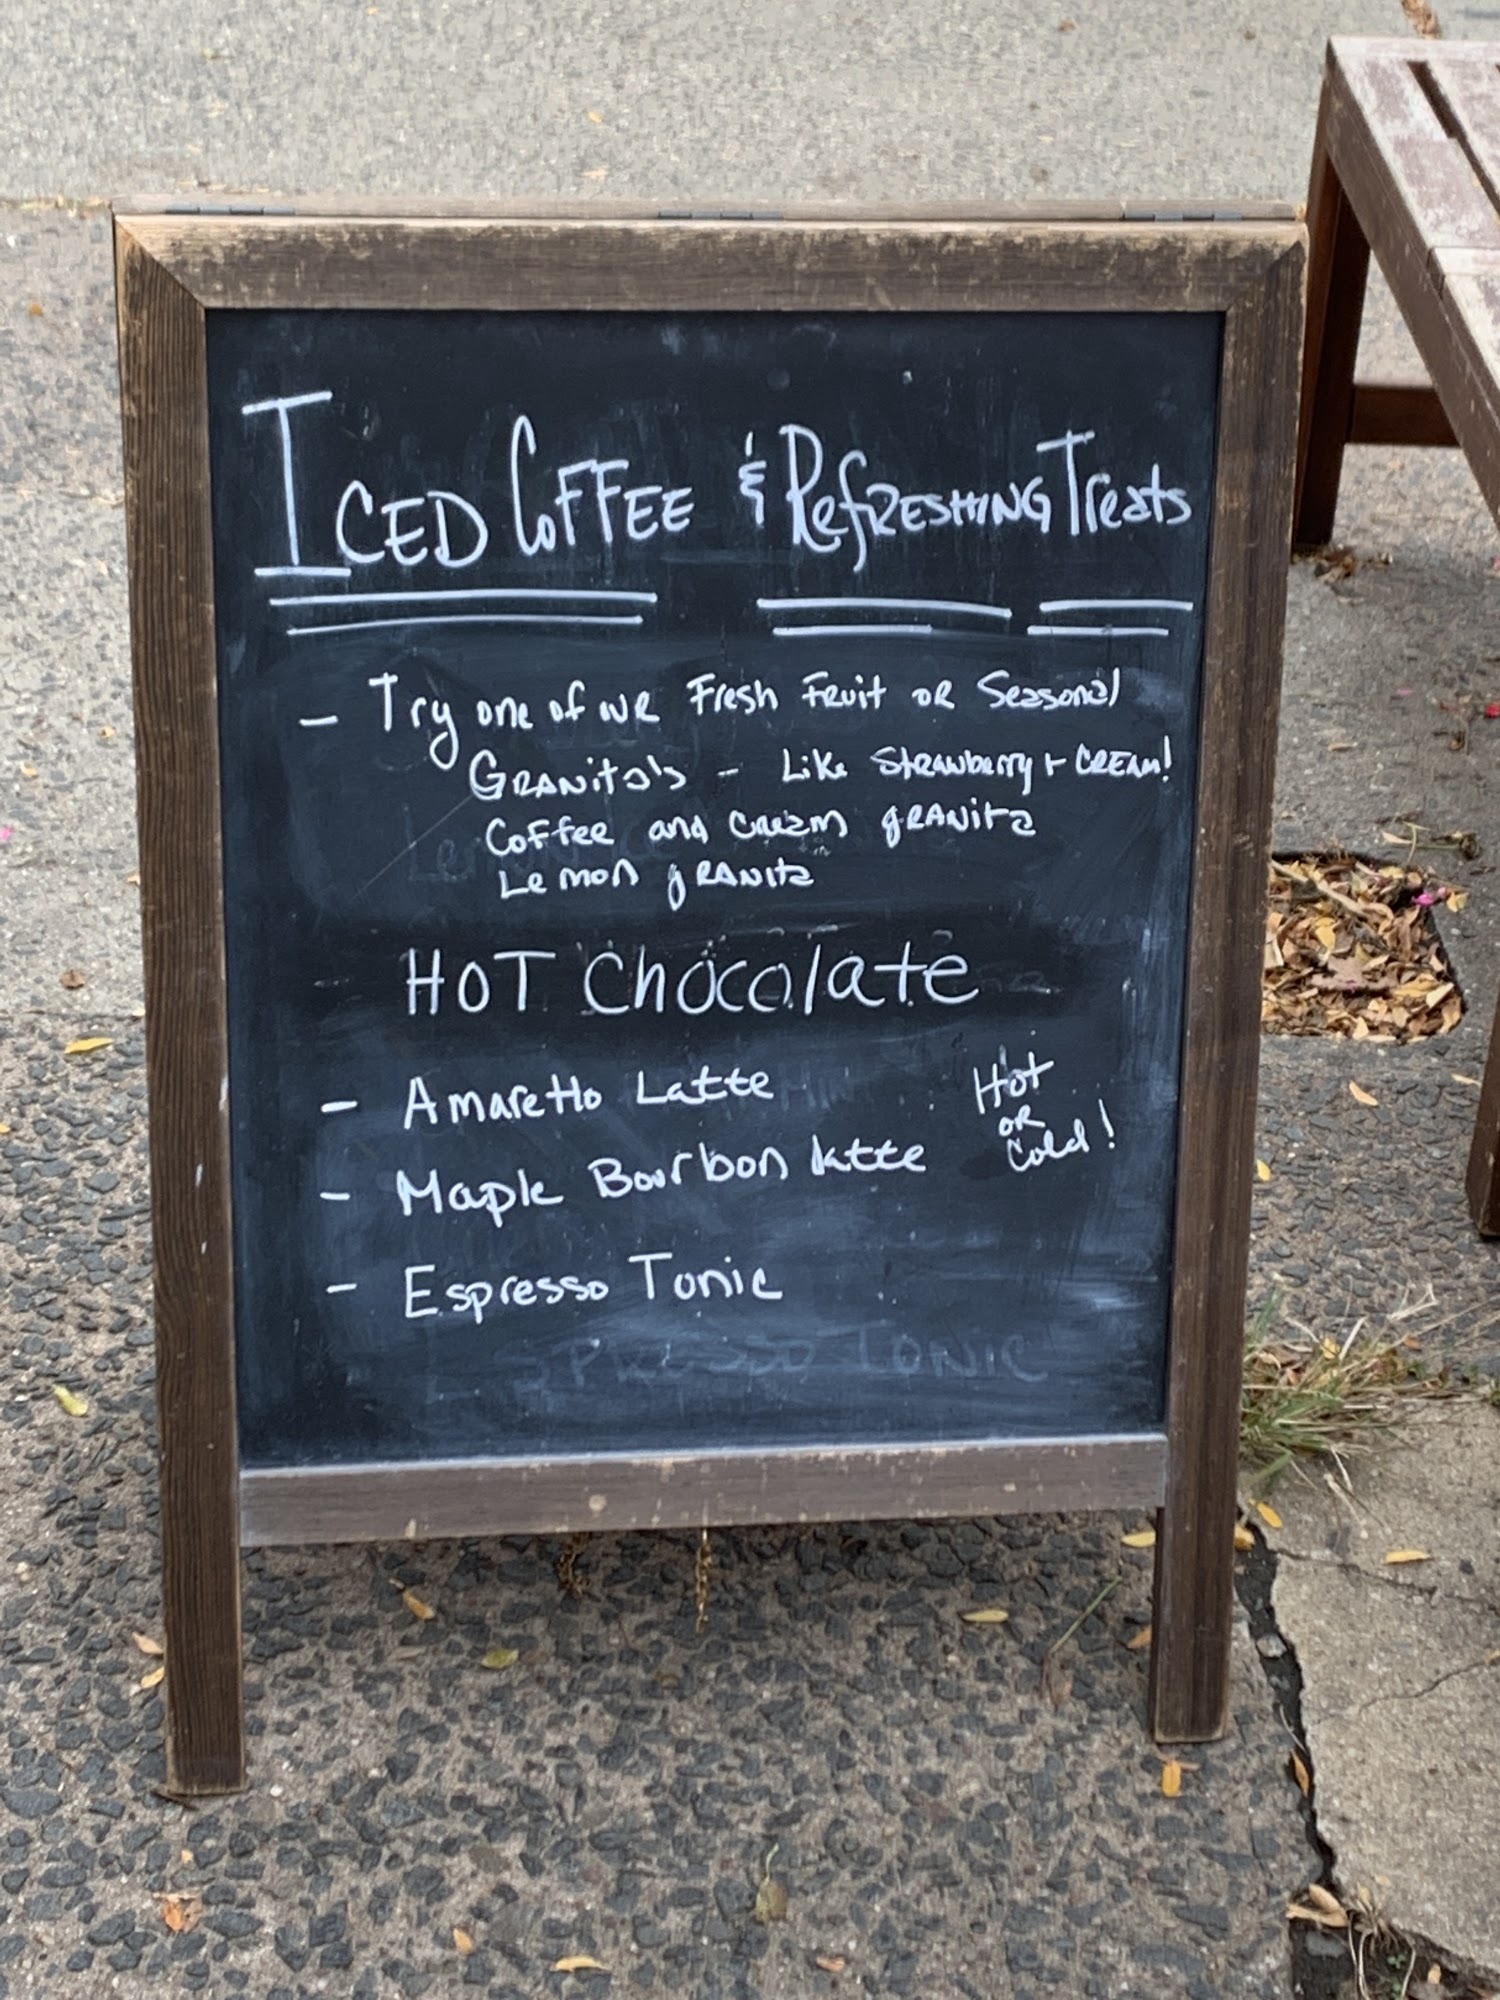 ICED COFFEE & RefRESHING Treats
- Try one of our Fresh Fruit or Seasonal
GRANita's - Like Strawberry + CREAM!
Coffee and Cream gRANita
Lemon gRANita
HOT Chocolate
- Amaretto Latte
Hot
OR
Cold!
- Maple Bourbon latte
- Espresso Tonic
ESPRESSO TONIC